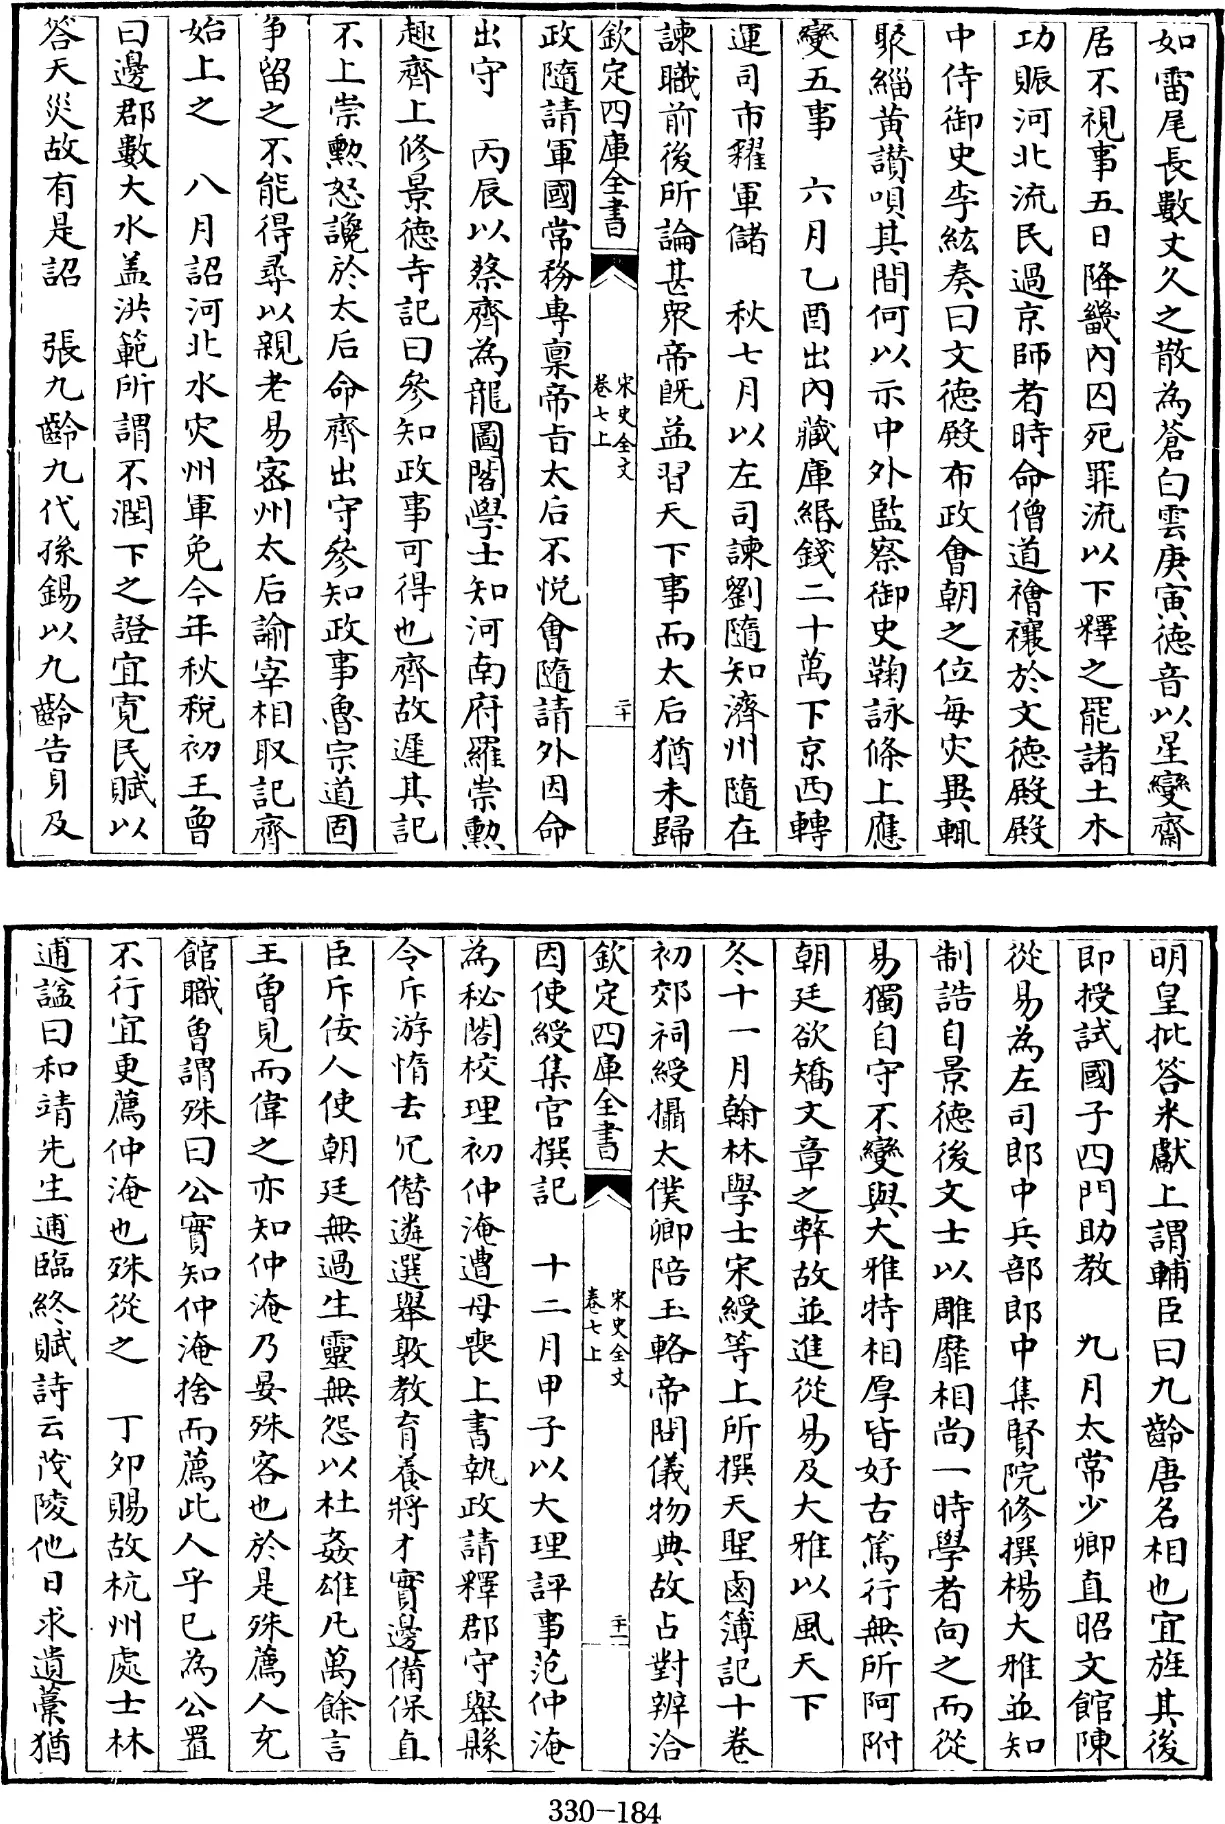 如雷尾長數丈久之散為蒼白雲庚寅德音以星變齋
居不視事五日降畿内囚死罪流以下釋之罷諸土木
功賑河北流民過京師者時命僧道禬禳於文德殿殿
中侍御史李紘奏曰文德殿布政會朝之位每灾異輒
聚緇黄讃唄其間何以示中外監察御史鞠詠條上應
變五事　六月乙酉出内藏庫緡錢二十萬下京西轉
運司市糴軍儲　秋七月以左司諫劉隨知濟州隨在
諫職前後所論甚衆帝既益習天下事而太后猶未歸
欽定四庫全書
宋史全文
卷七上
二十
政隨請軍國常務專稟帝旨太后不悦會隨請外因命
出守　丙辰以蔡齊為龍圖閣學士知河南府羅崇勲
趣齊上修景德寺記曰參知政事可得也齊故遲其記
不上崇勲怒讒於太后命齊出守參知政事魯宗道固
争留之不能得尋以親老易宻州太后諭宰相取記齊
始上之　八月詔河北水灾州軍免今年秋税初王曾
曰邊郡數大水盖洪範所謂不潤下之證宜寛民賦以
答天災故有是詔　張九齡九代孫錫以九齡告身及
明皇批答來獻上謂輔臣曰九齡唐名相也宜旌其後
即授試國子四門助教　九月太常少卿直昭文館陳
從易為左司郎中兵部郎中集賢院修撰楊大雅並知
制誥自景德後文士以雕靡相尚一時學者向之而從
易獨自守不變與大雅特相厚皆好古篤行無所阿附
朝廷欲矯文章之弊故並進從易及大雅以風天下
冬十一月翰林學士宋綬等上所撰天聖鹵簿記十卷
初郊祠綬攝太僕卿陪玉輅帝問儀物典故占對辨洽
欽定四庫全書
宋史全文
卷七上
二十一
因使綬集官撰記　十二月甲子以大理評事范仲淹
為秘閣校理初仲淹遭母喪上書執政請釋郡守舉縣
令斥游惰去冗僭遴選舉敦教育養將才實邊備保直
臣斥佞人使朝廷無過生靈無怨以杜姦雄凡萬餘言
王曾見而偉之亦知仲淹乃晏殊客也於是殊薦人充
館職曾謂殊曰公實知仲淹捨而薦此人乎已為公置
不行宜更薦仲淹也殊從之　丁卯賜故杭州處士林
逋謚曰和靖先生逋臨終賦詩云茂陵他日求遺藁猶
330-184